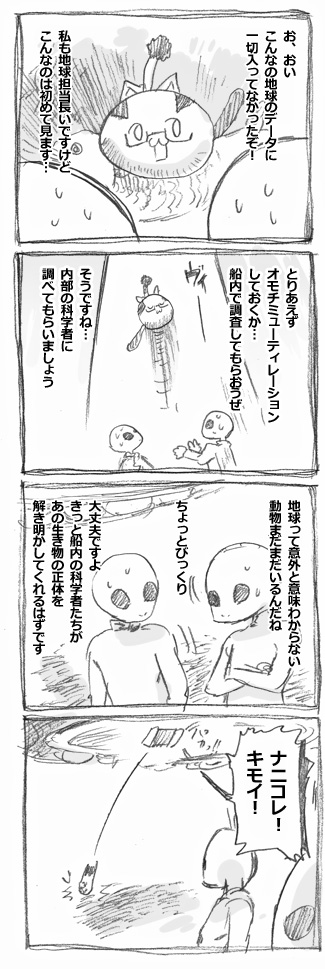 お、おい
こんなの地球のデータに
一切入ってなかったぞ！
私も地球担当長いですけど
こんなのは初めて見ます…
とりあえず
オモチミューティレーション
しておくか…
船内で調査してもらおうぜ
そうですね…
内部の科学者に
調べてもらいましょう
地球って意外と意味わからない
動物まだまだいるんだね
ちょっとびっくり
大丈夫ですよ
きっと船内の科学者たちが
あの生き物の正体を
解き明かしてくれるはずです
ナニコレ！
キモイ！